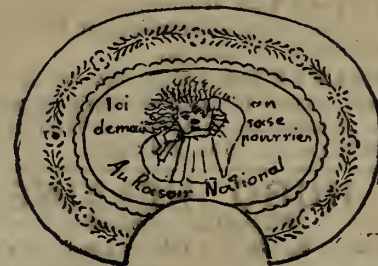 Ici
demain
on
rase
pourrien
Au Rasoir National